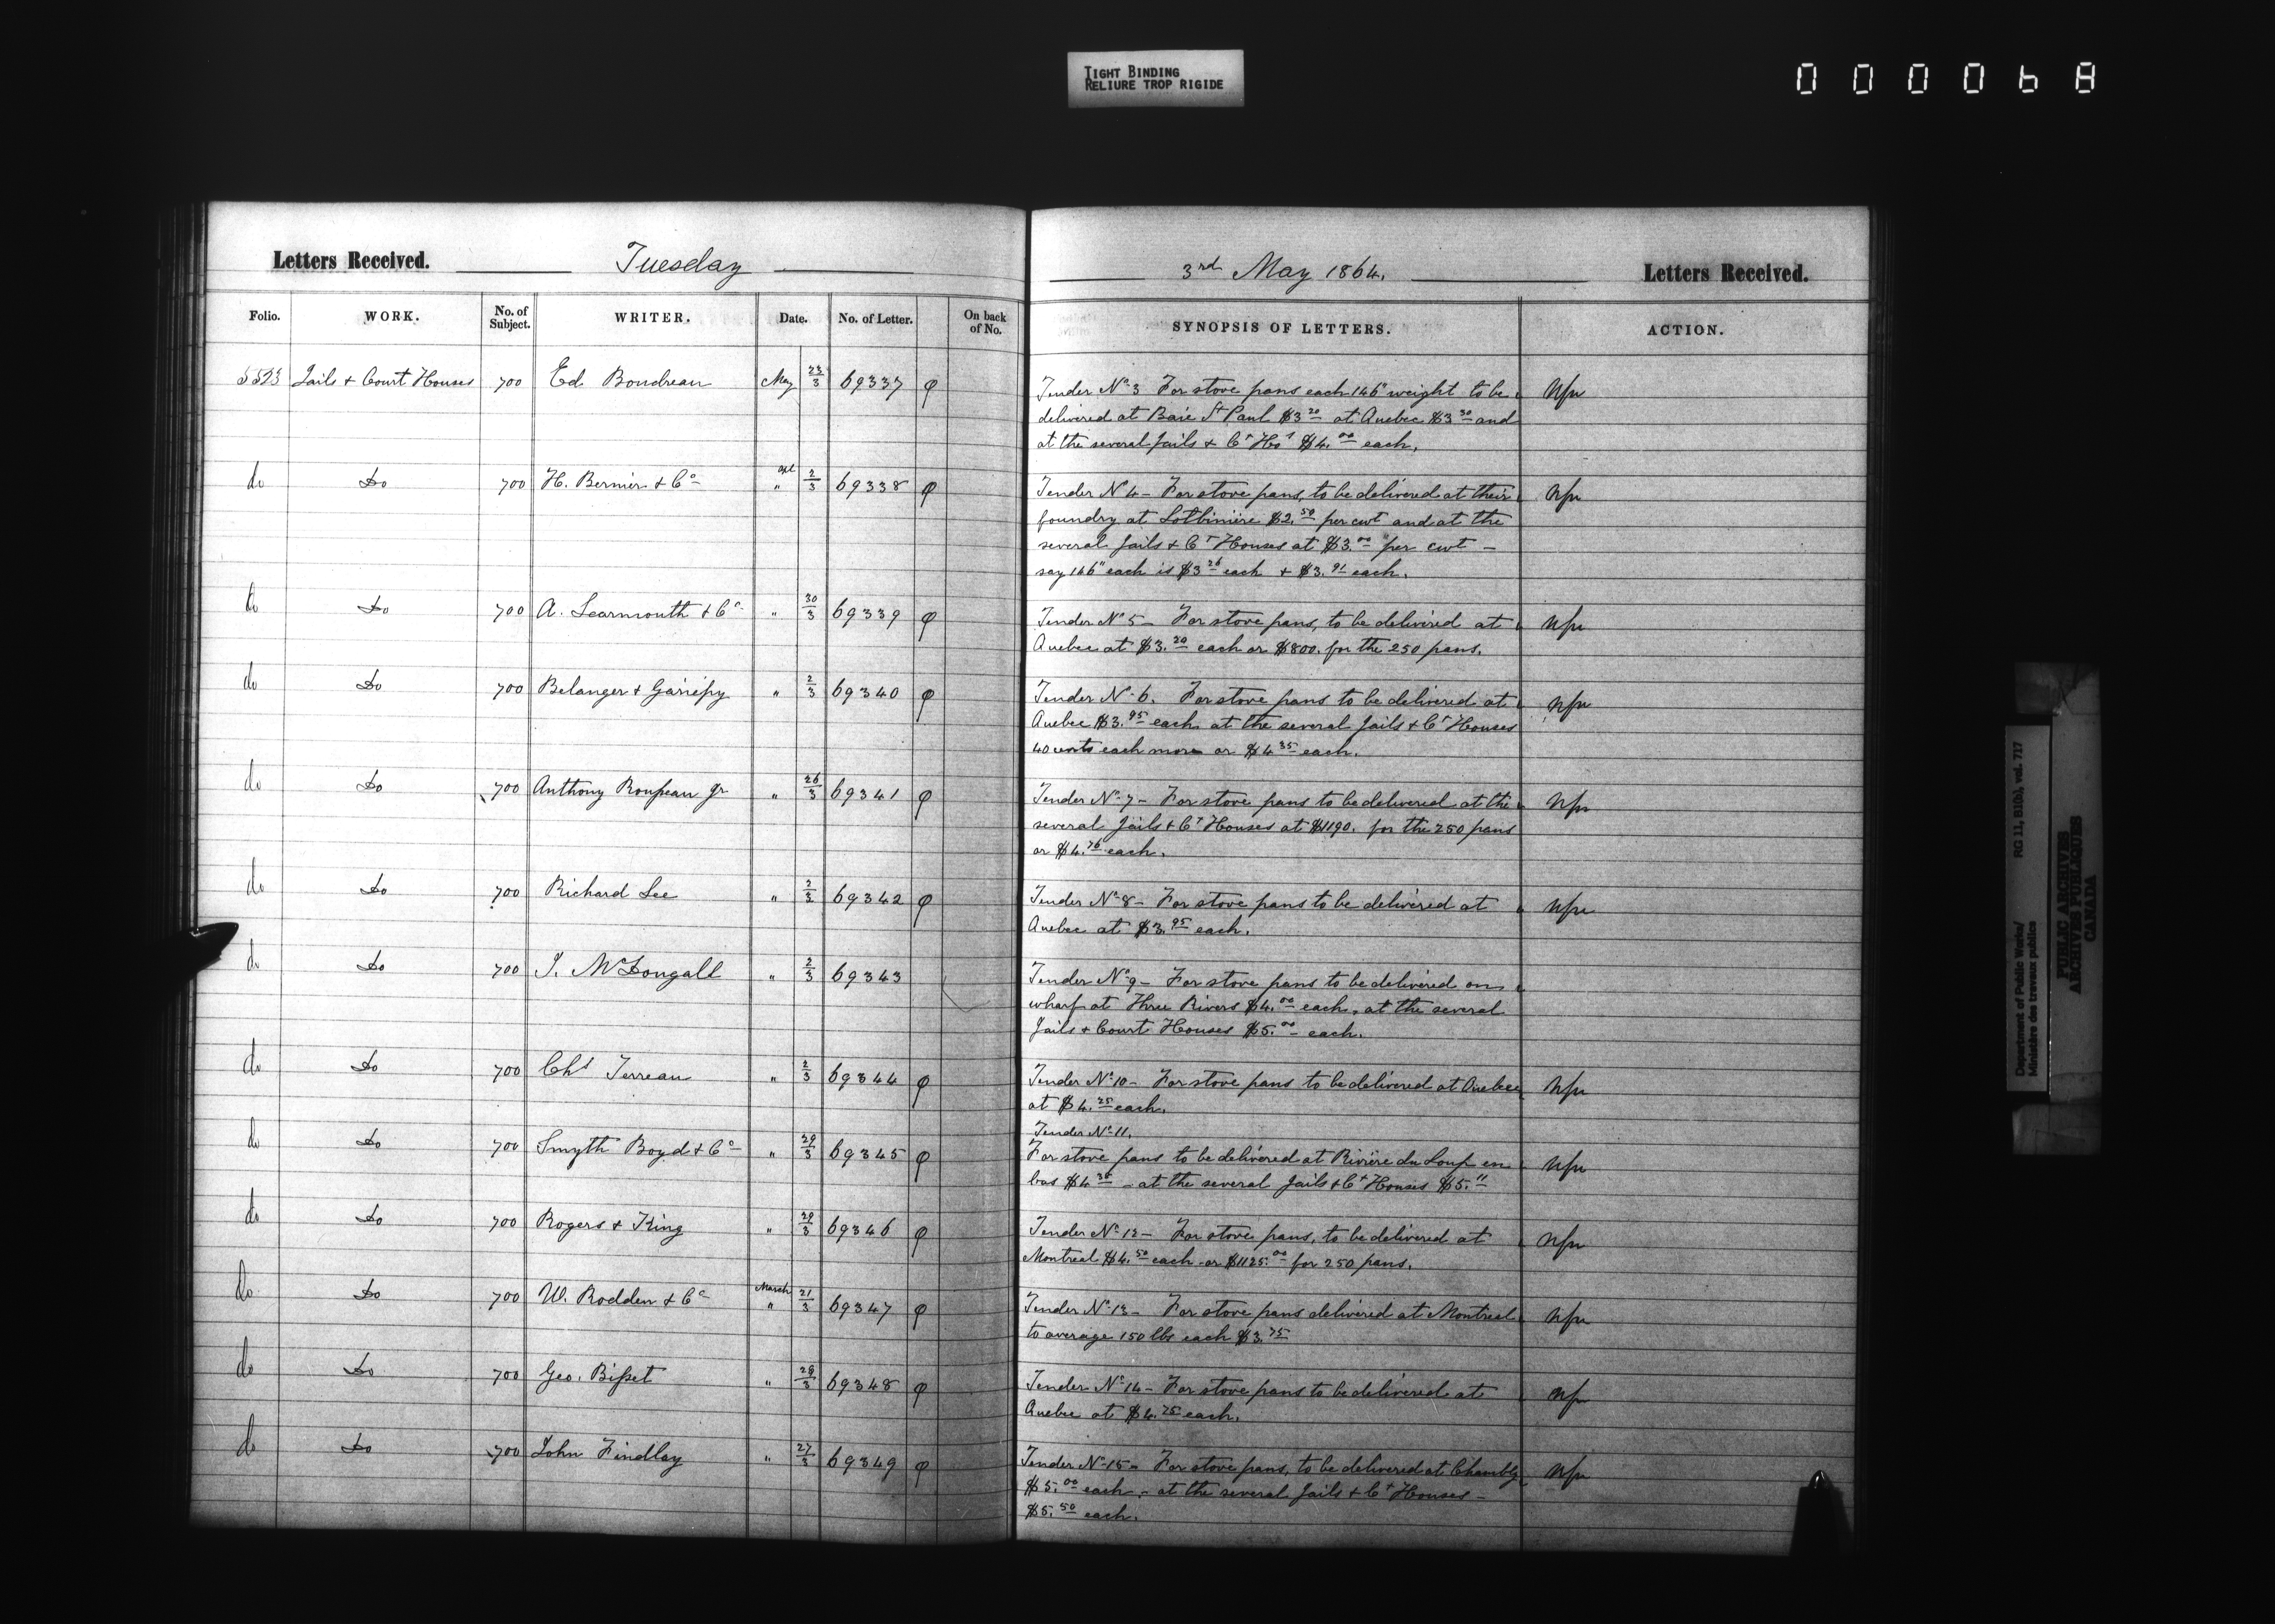 TIGHT BINDING
RELIURE TROP RIGIDE
000068
Letters Received. Tuesday
3rd May 1864. Letters Received.
Folio. WORK. No. of Subject. WRITER. Date. No. of Letter. On back of No.
SYNOPSIS OF LETTERS. ACTION.
5523 Jails & Court Houses 700 Ed. Boudreau May 23/3 69337 φ
Tender No. 3 For stove pans each 146" weight to be
delivered at Baie St Paul $3 20 at Quebec $3 30 and
at the several Jails & Ct Hos $4.00 each.
do Do 700 H. Bernier & Co apl " 2/3 69338 φ
Tender N 4 - For stove pans, to be delivered at their
foundry at Lotbinière $2.50 per cwt and at the
several Jails & Ct Houses at $3.00 per cwt -
say 146" each is $3 26 each & $3.91 each.
do Do 700 A. Learmouth & Co " 30/3 69339 φ
Tender No 5 - For stove pans, to be delivered at
Quebec at $3.20 each or $800. for the 250 pans.
do Do 700 Belanger & Gariépy " 2/3 69340 φ
Tender No 6. For stove pans to be delivered at
Quebec $3.95 each at the several Jails & Ct Houses
40 cents each more or $4 35 each.
do Do 700 Anthony Roupeau Jr " 26/3 69341 φ
Tender No 7 - For stove pans to be delivered at the
several Jails & Ct Houses at $1190. for the 250 pans
or $4.76 each.
do Do 700 Richard Lee " 2/3 69342 φ
Tender No 8 - For stove pans to be delivered at
Quebec at $3.95 each.
do Do 700 J. McDougall " 2/3 69343
Tender No 9 - For stove pans to be delivered on
wharf at Three Rivers $4.00 each, at the several
Jails & Court Houses $5.00 each.
do Do 700 Chs Terreau " 2/3 69344 φ
Tender No 10 - For stove pans to be delivered at Quebec
at $4.25 each.
do Do 700 Smyth Boyd & Co " 29/3 69345 φ
Tender No 11.
For stove pans to be delivered at Rivière du Loup en
bas $4 - at the several Jails & Ct Houses $5.11
do Do 700 Rogers & King " 29/3 69346 φ
Tender No 12 - For stove pans, to be delivered at
Montreal $4.50 each or $1125.00 for 250 pans.
do Do 700 W. Rodden & Co March " 21/3 69347 φ
Tender No 13 - For stove pans delivered at Montreal
to average 150 lbs each $3.75
do Do 700 Geo. Bisset " 28/3 69348 φ
Tender No 14 - For stove pans to be delivered at
Quebec at $4.75 each.
do Do 700 John Findlay " 27/3 69349 φ
Tender No 15 - For stove pans, to be delivered at Chambly
$5.00 each, - at the several Jails & Ct Houses -
$5.50 each.
Department of Public Works/ RG 11, B1(b), vol. 717
Ministère des travaux publics
PUBLIC ARCHIVES
ARCHIVES PUBLIQUES
CANADA